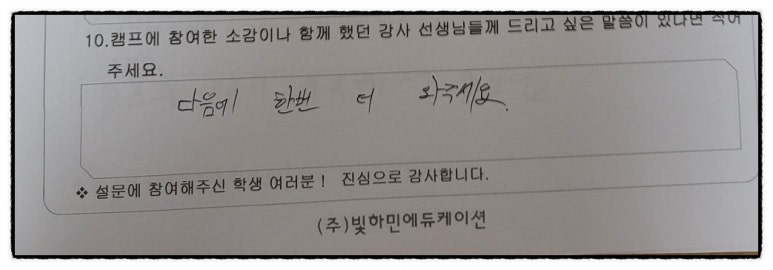 10.캠프에 참여한 소감이나 함께 했던 강사 선생님들께 드리고 싶은 말씀이 있다면 적어
주세요.
다음에 한번 더 와주세요.
❖ 설문에 참여해주신 학생 여러분! 진심으로 감사합니다.
(주)빛하민에듀케이션